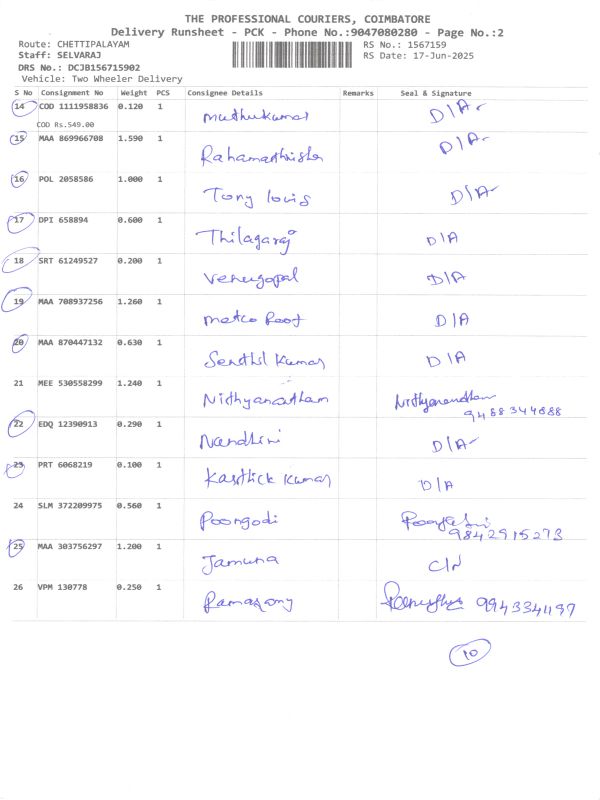 THE PROFESSIONAL COURIERS, COIMBATORE
Delivery Runsheet - PCK - Phone No.:9047080280 - Page No.:2
Route: CHETTIPALAYAM RS No.: 1567159
Staff: SELVARAJ RS Date: 17-Jun-2025
DRS No.: DCJB156715902
Vehicle: Two Wheeler Delivery
S No Consignment No Weight PCS Consignee Details Remarks Seal & Signature
14 COD 1111958836 0.120 1 Muthukumar D/A
COD Rs.549.00
15 MAA 869966708 1.590 1 D/A
16 POL 2058586 1.000 1 Tony louis D/A
17 DPI 658894 0.600 1 Thilagaraj D/A
18 SRT 61249527 0.200 1 Venugopal D/A
19 MAA 708937256 1.260 1 metco Roof D/A
20 MAA 870447132 0.630 1 Senthil Kumar D/A
21 MEE 530558299 1.240 1 Nithyanantham Nithyanandham
9488344688
22 EDQ 12390913 0.290 1 Nandhini D/A
23 PRT 6068219 0.100 1 Karthick Kumar D/A
24 SLM 372209975 0.560 1 Poongodi
9842915273
25 MAA 303756297 1.200 1 Jamuna C/N
26 VPM 130778 0.250 1 Ramasamy 9943341197
10